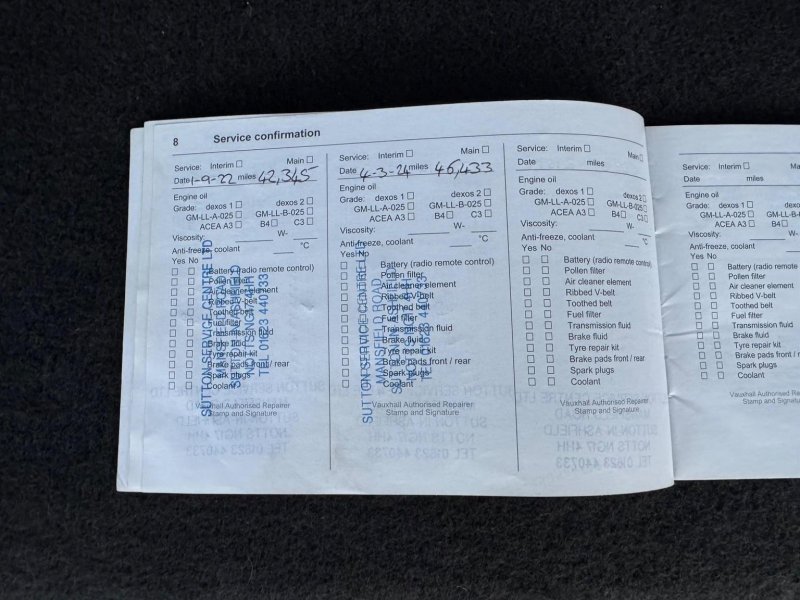 8 Service confirmation
Service: Interim Main
Date 1-9-22 miles 42,345
Engine oil
Grade: dexos 1 dexos 2
GM-LL-A-025 GM-LL-B-025
ACEA A3 B4 C3
Viscosity: W-
Anti-freeze, coolant °C
Yes No
Battery (radio remote control)
Pollen filter
Air cleaner element
Ribbed V-belt
Toothed belt
Fuel filter
Transmission fluid
Brake fluid
Tyre repair kit
Brake pads front / rear
Spark plugs
Coolant
Vauxhall Authorised Repairer
Stamp and Signature
SUTTON SERVICE CENTRE LTD
TEL 01623 440733
Service: Interim Main
Date 4-3-24 miles 46,433
Engine oil
Grade: dexos 1 dexos 2
GM-LL-A-025 GM-LL-B-025
ACEA A3 B4 C3
Viscosity: W-
Anti-freeze, coolant °C
Yes No
Battery (radio remote control)
Pollen filter
Air cleaner element
Ribbed V-belt
Toothed belt
Fuel filter
Transmission fluid
Brake fluid
Tyre repair kit
Brake pads front / rear
Spark plugs
Coolant
Vauxhall Authorised Repairer
Stamp and Signature
SUTTON SERVICE CENTRE LTD
MANSFIELD ROAD
TEL 01623 440733
Service: Interim Main
Date miles
Engine oil
Grade: dexos 1 dexos 2
GM-LL-A-025 GM-LL-B-025
ACEA A3 B4 C3
Viscosity: W-
Anti-freeze, coolant °C
Yes No
Battery (radio remote control)
Pollen filter
Air cleaner element
Ribbed V-belt
Toothed belt
Fuel filter
Transmission fluid
Brake fluid
Tyre repair kit
Brake pads front / rear
Spark plugs
Coolant
Vauxhall Authorised Repairer
Stamp and Signature
Service: Interim
Date miles
Engine oil
Grade: dexos 1
GM-LL-A-025 GM-LL-B
ACEA A3 B4
Viscosity:
Anti-freeze, coolant
Yes No
Battery (radio remote co
Pollen filter
Air cleaner element
Ribbed V-belt
Toothed belt
Fuel filter
Transmission fluid
Brake fluid
Tyre repair kit
Brake pads front / rear
Spark plugs
Coolant
Vauxhall Authorised Repai
Stamp and Signature